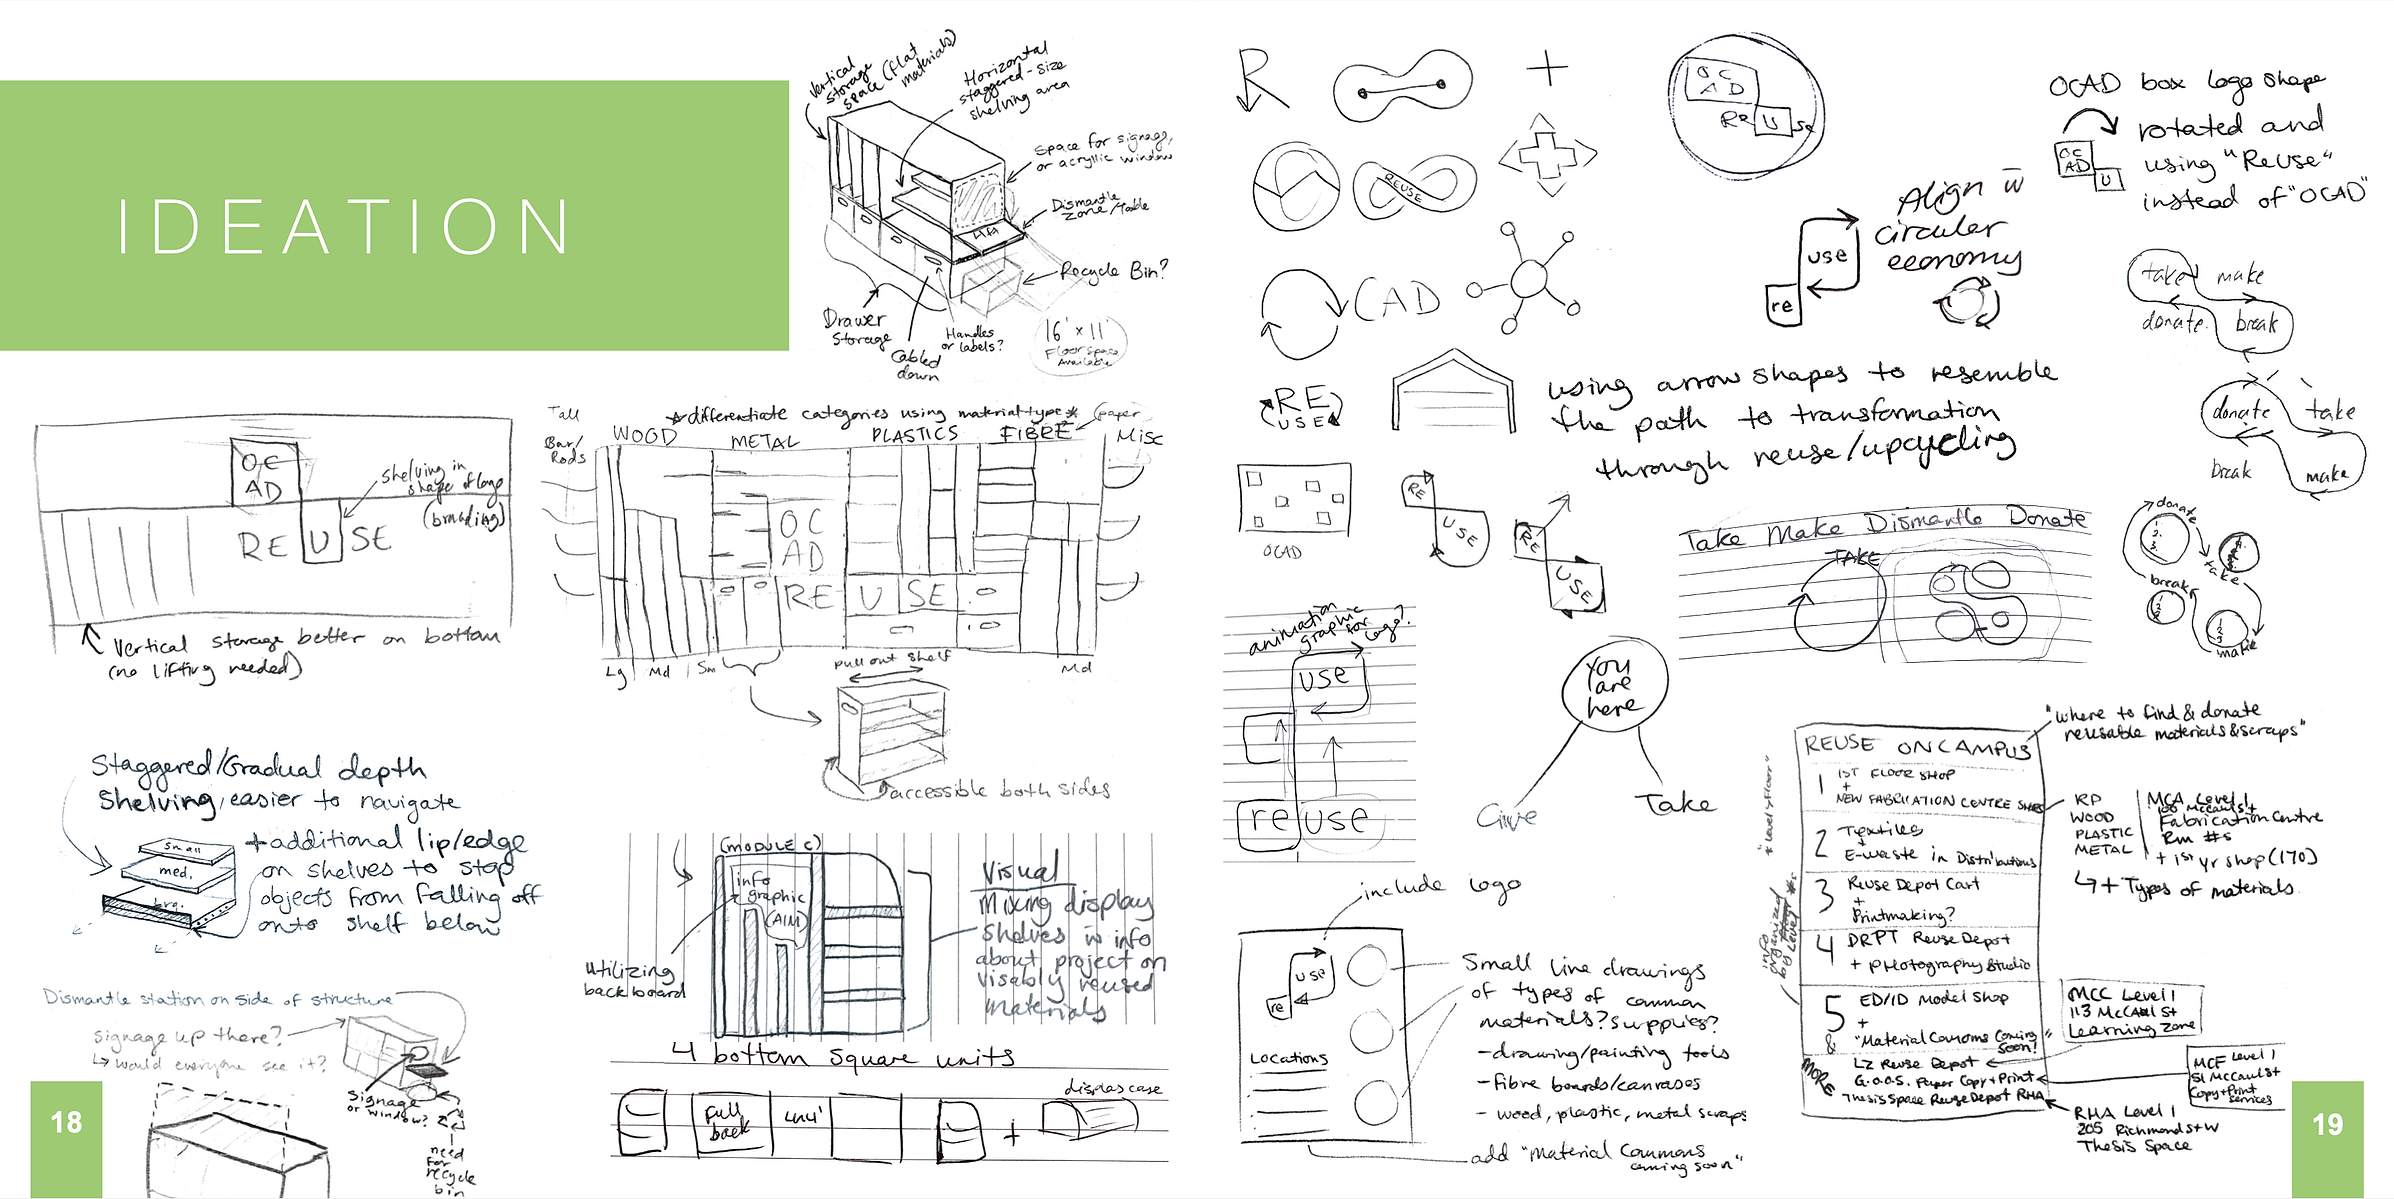 IDEATION
Vertical
storage
space (flat
materials)
Horizontal
staggered-size
shelving area
Space for signage,
or acryllic window
Dismantle
zone/table
Recycle Bin?
Drawer
Storage
Cabled
down
Handles
or labels?
16' x 11'
Floor space
Available
OC
AD
RE U SE
shelving in
shape of logo
(branding)
Vertical storage better on bottom
(no lifting needed)
*differentiate categories using material type*
(paper
Tall
Bar/
Rods
WOOD
METAL
PLASTICS
FIBRE
Misc
OC
AD
RE U SE
Lg
Md
Sm
Md
pull out shelf
accessible both sides
Staggered/Gradual depth
Shelving, easier to navigate
+additional lip/edge
on shelves to stop
objects from falling off
onto shelf below
small
med.
lrg.
(MODULE C)
info
graphic
(AIM)
utilizing
backboard
Visual
Mixing display
shelves w info
about project on
visably reused
materials
Dismantle station on side of structure
signage up there?
↳ would everyone see it?
Signage
or window?
need
for
recycle
bin
4 bottom square units
Full
back
unit
display case
18
R
+
REUSE
CAD
RE
USE
OCAD
OC
AD
Re U se
OCAD box logo shape
rotated and
using "ReUse"
instead of "OCAD"
OC
AD
U
Align w̄
circular
economy
use
re
take make
donate break
donate take
break make
using arrow shapes to resemble
the path to transformation
through reuse/upcycling
RE
USE
RE
USE
Take Make Dismantle Donate
TAKE
donate
take
break
make
animation
graphic
for
logo?
use
re use
You
are
here
Give
Take
include logo
use
re
Locations
Small line drawings
of types of common
materials? supplies?
-drawing/painting tools
-fibre boards/canvases
- wood, plastic, metal scraps
add "Material Commons
coming soon"
"where to find & donate
reusable materials & scraps"
REUSE ON CAMPUS
1 1ST FLOOR SHOP
+
NEW FABRICATION CENTRE
2 Textiles
+
E-waste in Distributions
3 Reuse Depot Cart
+
Printmaking?
4 DRPT Reuse Depot
+ PHotography Studio
5 ED/ID Model Shop
+
& "Material Commons Coming
soon!"
MORE
LZ Reuse Depot
G.O.O.S. Paper Copy+Print
Thesis Space Reuse Depot RHA
info
organized
by Level
RP
WOOD
PLASTIC
METAL
MCA Level 1
100 McCaul St
Fabrication Centre
Rm #s
+ 1st yr shop (170)
↳ + Types of materials
MCC Level 1
113 McCaul St
Learning Zone
MCF Level 1
51 McCaul St
Copy+Print
Services
RHA Level 1
205 Richmond St W
Thesis Space
19